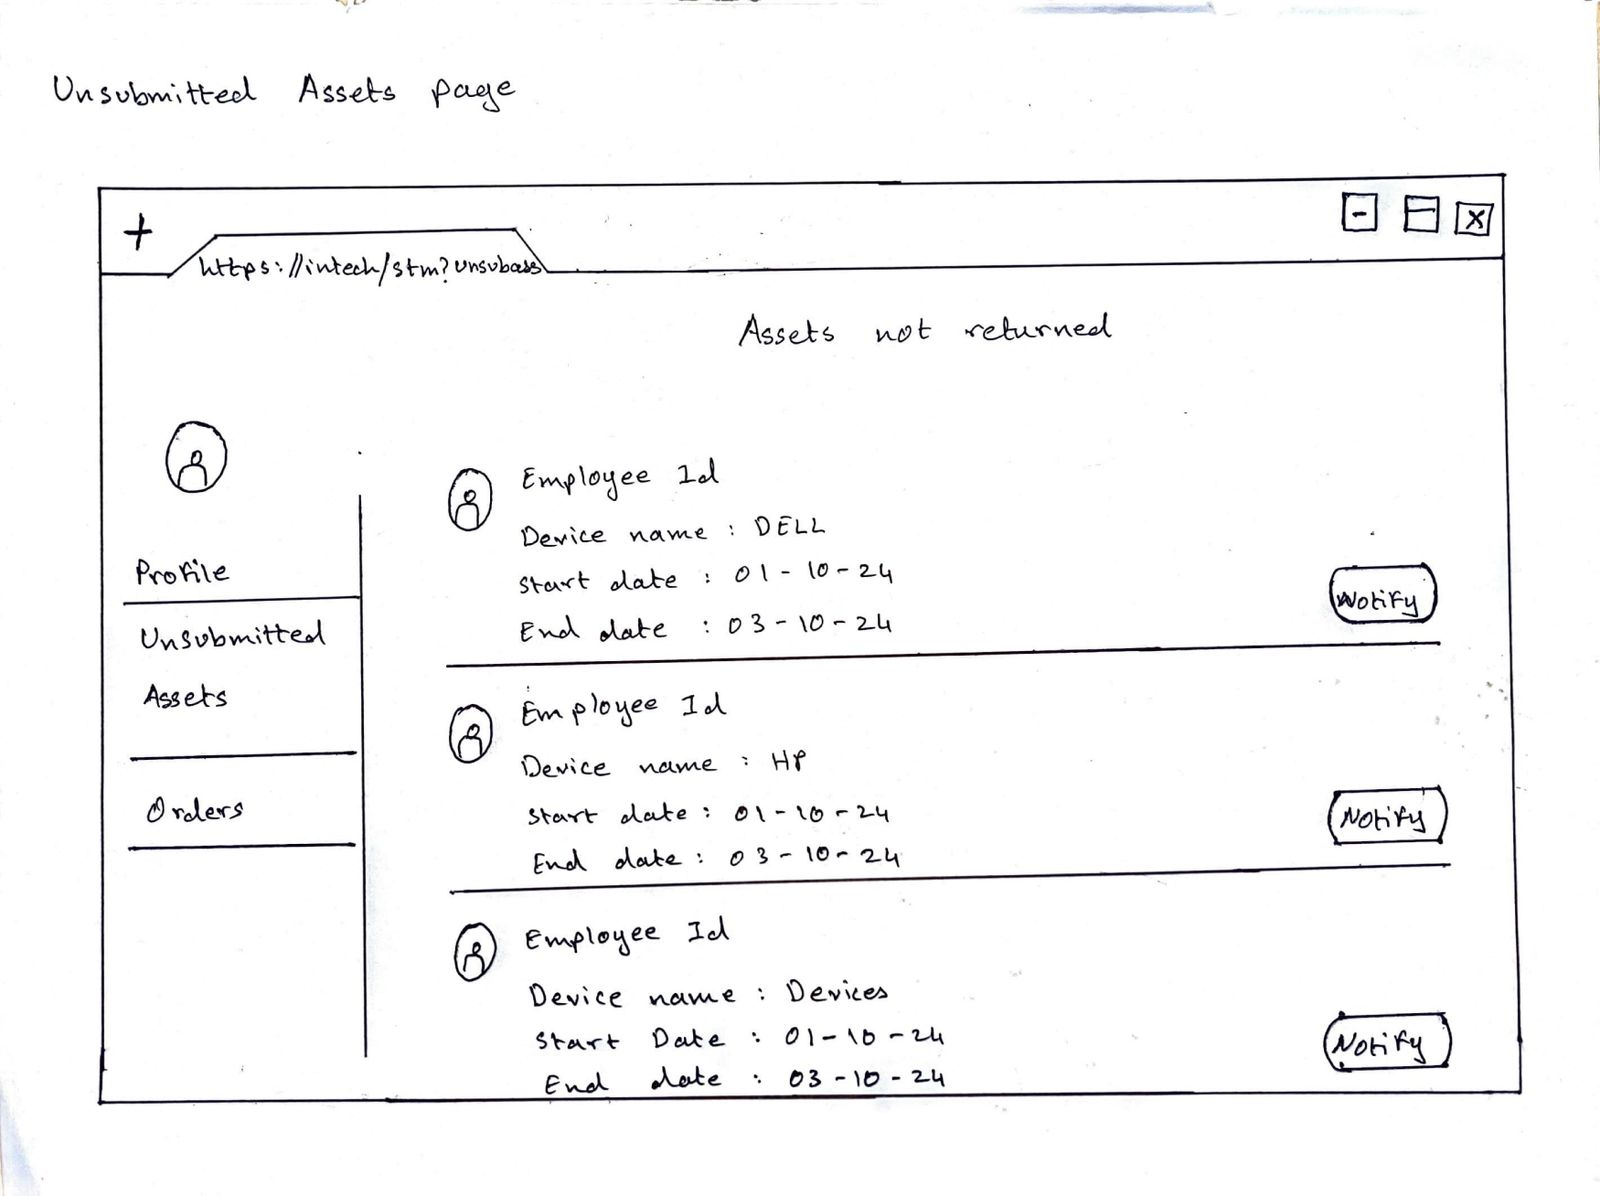 Unsubmitted Assets page
+
- X
https://intech/stm?unsubass
Assets not returned
Profile
Unsubmitted
Assets
Orders
Employee Id
Device name : DELL
Start date : 01-10-24
End date : 03-10-24
Notify
Employee Id
Device name : HP
Start date : 01-10-24
End date : 03-10-24
Notify
Employee Id
Device name : Devices
Start Date : 01-10-24
End date : 03-10-24
Notify